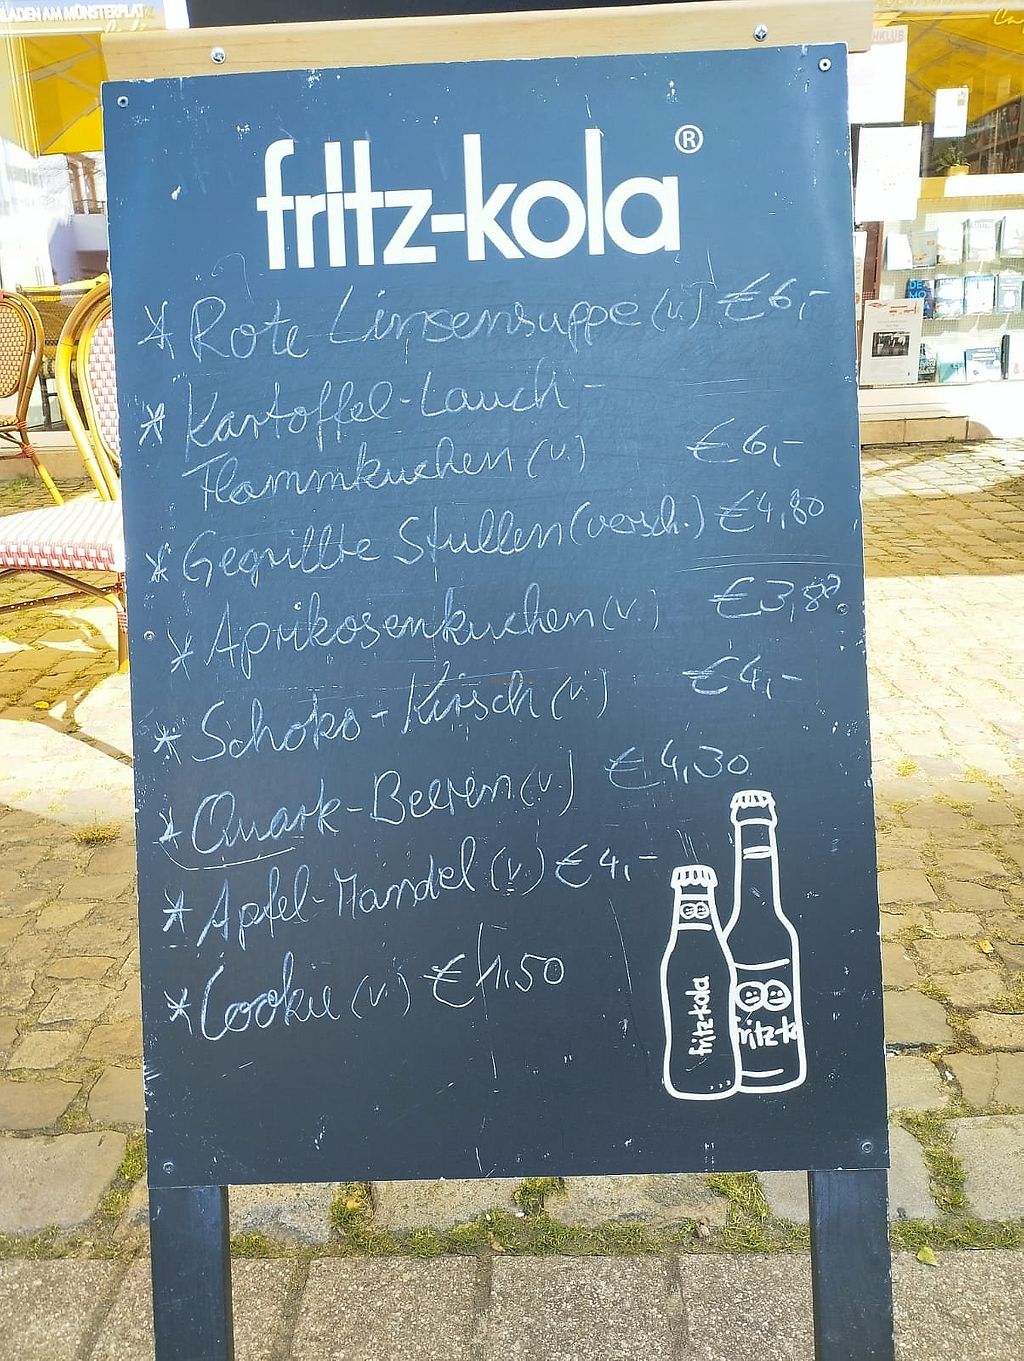 LADEN AM MÜNSTERPLAT
fritz-kola®
* Rote Linsensuppe (v.) €6,-
* Kartoffel-Lauch-
Flammkuchen (v.) €6,-
* Gegrillte Stullen (versch.) €4,80
* Aprikosenkuchen (v.) €3,80
* Schoko-Kirsch (v.) €4,-
* Quark-Beeren (v.) €4,30
* Apfel-Mandel (v.) €4,-
* Cookie (v.) €1,50
fritz-kola
fritz-k